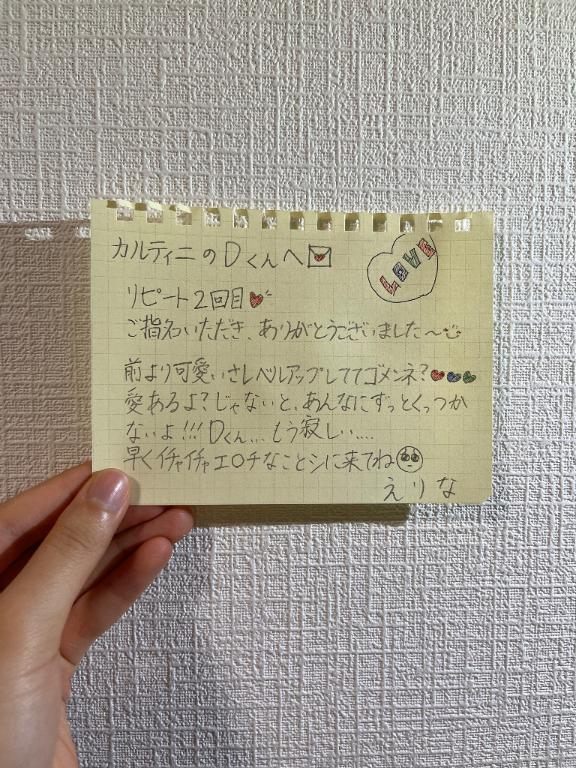 カルティニのDくんへ
リピート2回目
ご指名いただき、ありがとうございました〜
前より可愛いさレベルアップしててゴメンネ?
愛あるよ?じゃないと、あんなにずっとくっつか
ないよ!!!Dくん...もう寂しい....
早くイチャイチャエロチなことシに来てね
えりな